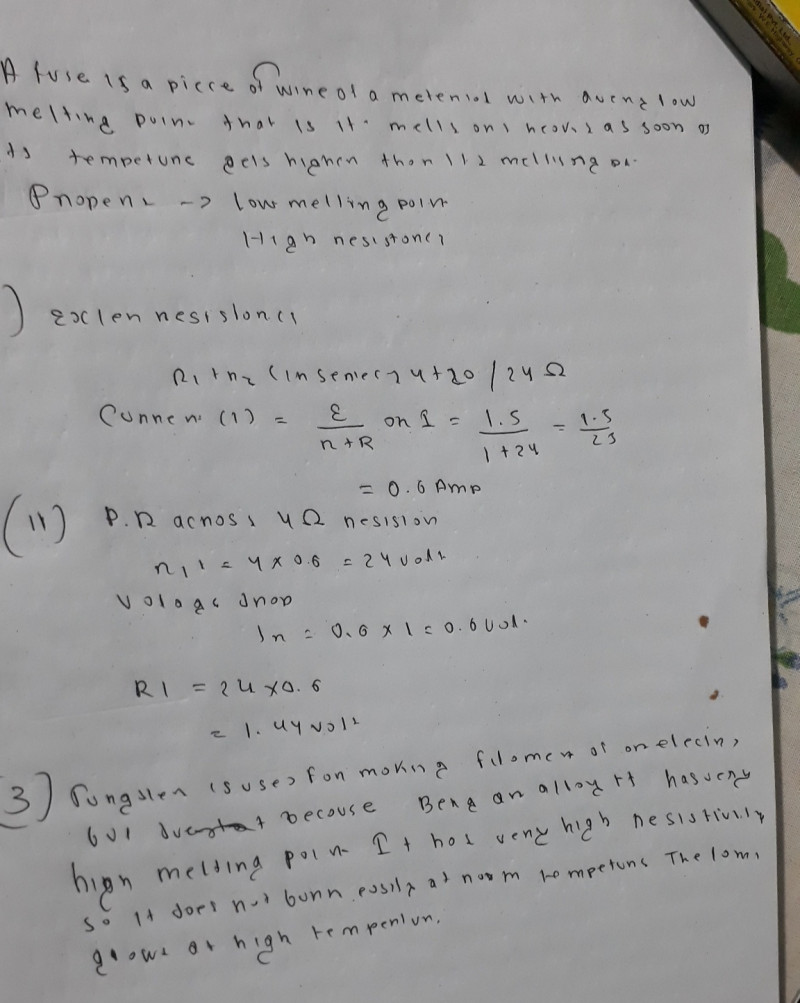 A fuse is a piece of wire of a meterial with a very low
melting point that is it melts ons as soon as
its tempeture gets higher than its melting pt.
Propent -> low melling point
High resistance
) Exlen resistance
R1 + r2 (in series) 4+20 / 24 Ω
Current (1) = ε / r+R or I = 1.5 / 1+24 = 1.5 / 25
= 0.6 Amp
(11) P.D across 4Ω resision
= 4 x 0.6 = 24 volt
Voloage drop
Ir = 0.6 x 1 = 0.6 vol.
RI = 24 x 0.6
= 1.44 volt
3) Tungsten is used for making filoment of an elecin,
bul because Being an alloy it has very
high melting point It has very high resistivity
so it does not burn easily at room tempeture The lam,
glows at high tempentur.